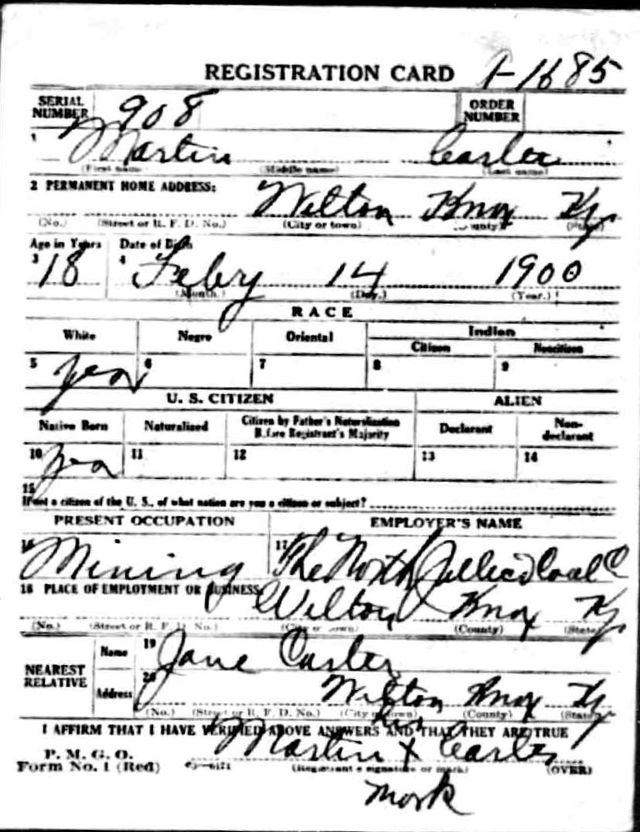 REGISTRATION CARD 1-1685
SERIAL NUMBER 908 ORDER NUMBER
1 Martin Carter
(First name) (Middle name) (Last name)
2 PERMANENT HOME ADDRESS:
Wilton Knox Ky
(No.) (Street or R. F. D. No.) (City or town) (County) (State)
Age in Years Date of Birth
3 18 4 Feby 14 1900
(Month.) (Day.) (Year.)
RACE
White Negro Oriental Indian
Citizen Noncitizen
5 yes 6 7 8 9
U. S. CITIZEN ALIEN
Native Born Naturalized Citizen by Father's Naturalization Before Registrant's Majority Declarant Non-declarant
10 yes 11 12 13 14
15
If not a citizen of the U. S., of what nation are you a citizen or subject?
PRESENT OCCUPATION EMPLOYER'S NAME
16 Mining 17 The North Jellico Coal Co
18 PLACE OF EMPLOYMENT OR BUSINESS:
Wilton Knox Ky
(No.) (Street or R. F. D. No.) (City or town) (County) (State)
NEAREST RELATIVE Name 19 Jane Carter
Address 20 Wilton Knox Ky
(No.) (Street or R. F. D. No.) (City or town) (County) (State)
I AFFIRM THAT I HAVE VERIFIED ABOVE ANSWERS AND THAT THEY ARE TRUE
P. M. G. O.
Form No. 1 (Red) 3-6171 Martin X Carter
(Registrant's signature or mark) (OVER)
mark